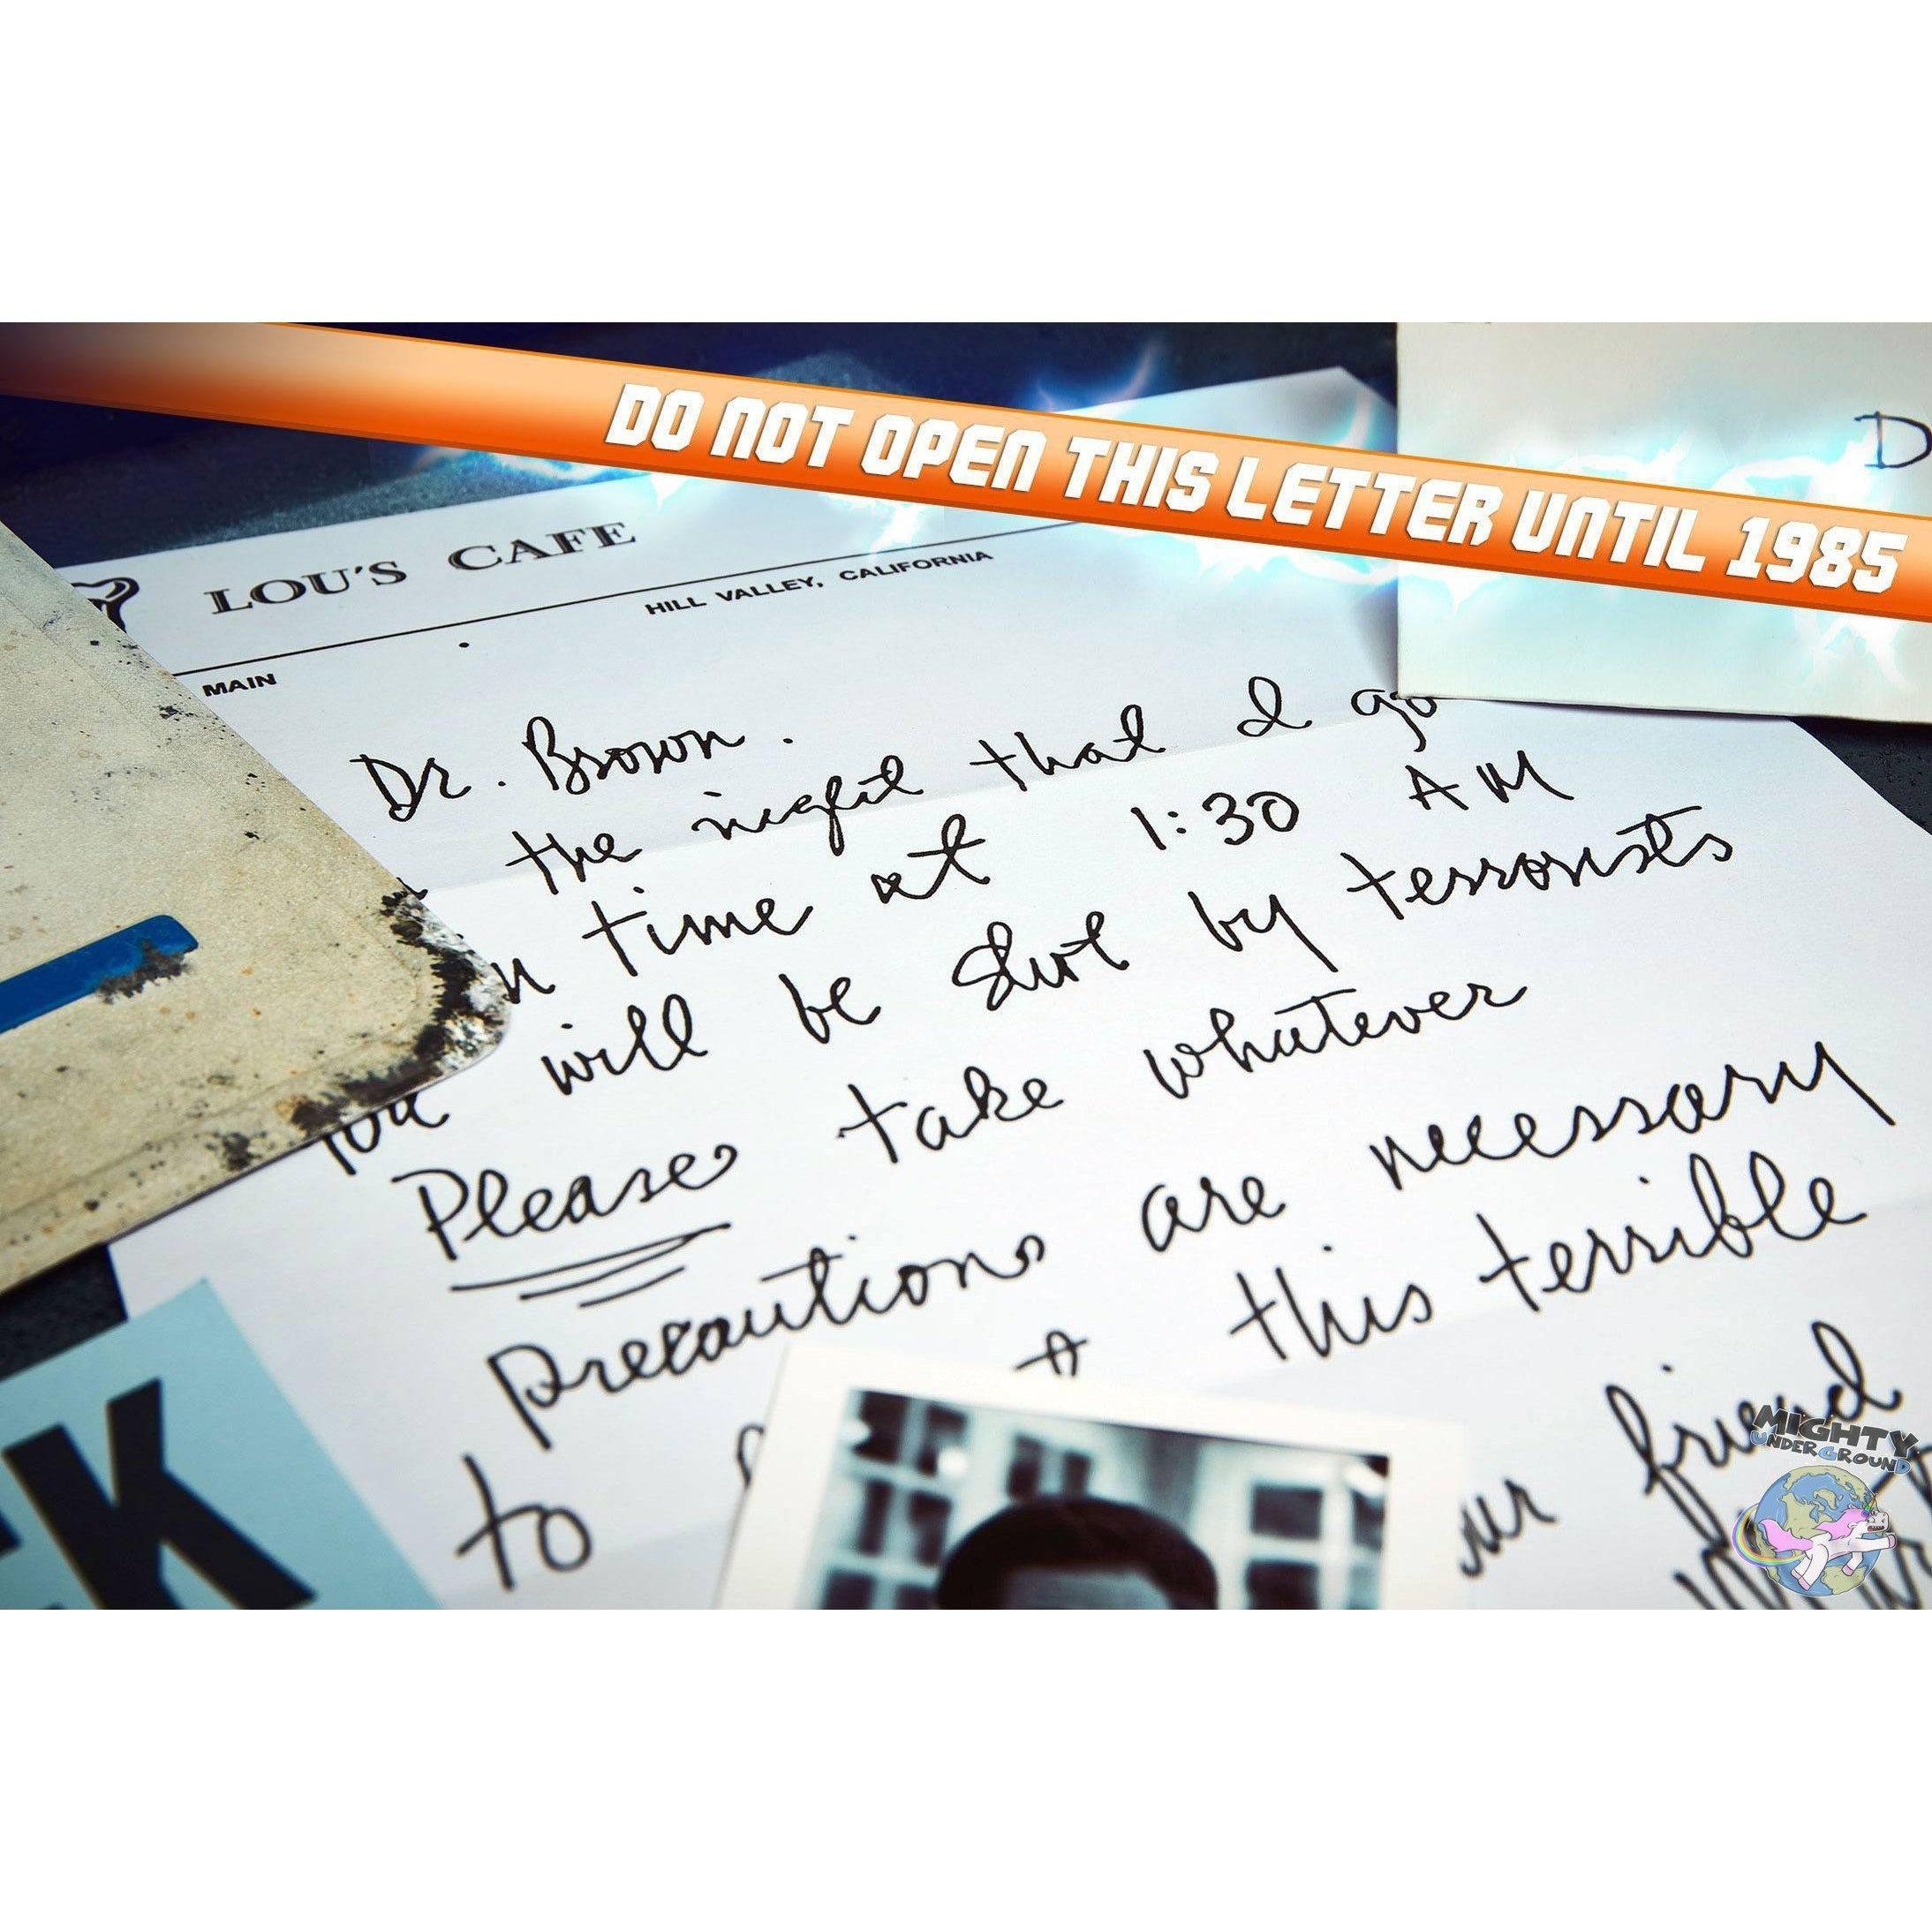 DO NOT OPEN THIS LETTER UNTIL 1985
D
LOU'S CAFE
HILL VALLEY, CALIFORNIA
MAIN
Dr. Brown.
the night that I go
n time at 1:30 AM
you will be shot by terrorists
Please take whatever
precautions are necessary
to this terrible
ur friend
K
MIGHTY
UNDERGROUND